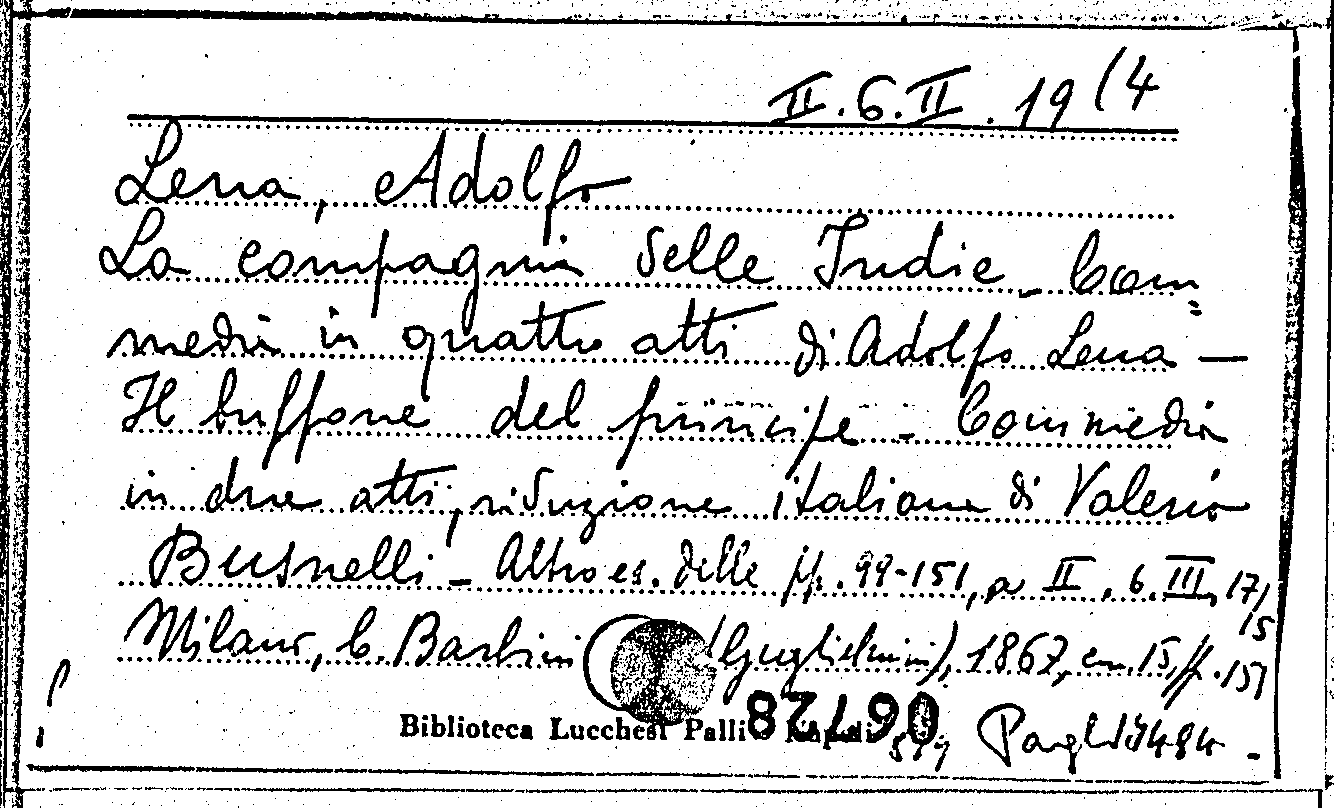 II.6.II.19 (4
Lena, Adolfo
La compagnia delle Indie - Com=
media in quattro atti di Adolfo Lena —
Il buffone del principe - Commedia
in due atti, riduzione italiana di Valerio
Busnelli - Altro es. delle pp. 99-151, a II.6.III,17/
15
Milano, C. Barbini (Guglielmini), 1867, cm. 15, pp. 151
Biblioteca Lucchesi Palli - Napoli
067728